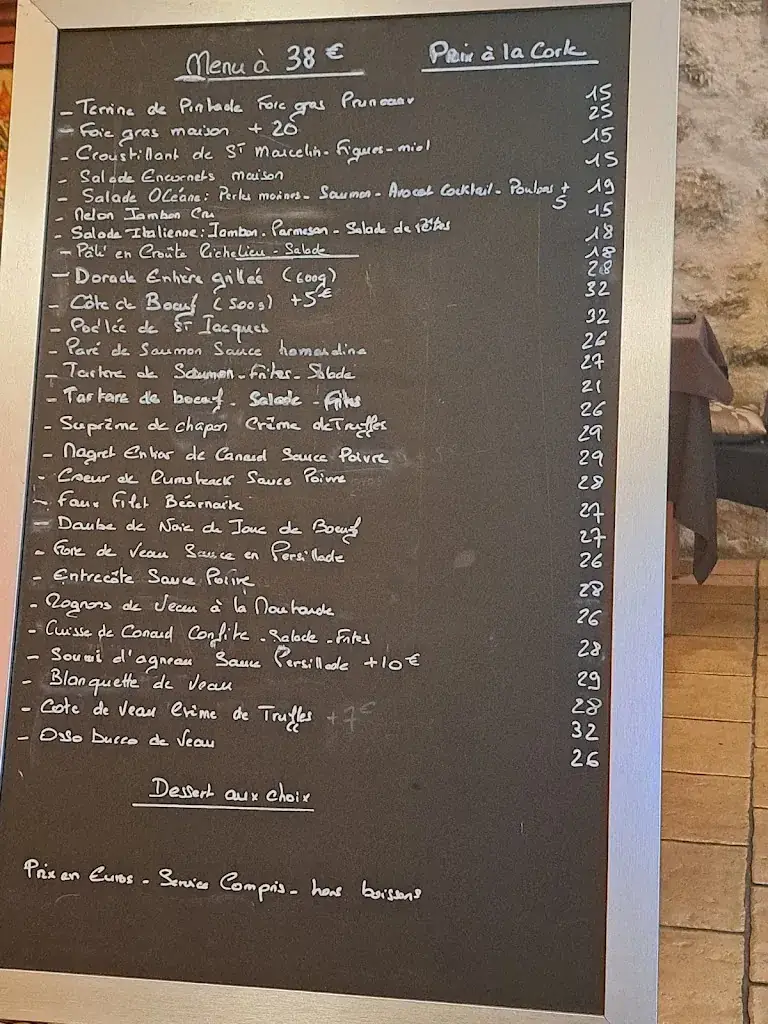 Menu à 38 € Prix à la Carte
- Terrine de Pintade Foie gras Pruneaux 15
- Foie gras maison + 20 25
- Croustillant de ST Marcelin - Figues - miel 15
- Salade Encornets maison 15
- Salade Océane: Perles marines - Saumon - Avocat Cocktail - Poulpes + 5 19
- Melon Jambon Cru 15
- Salade Italienne: Jambon. Parmesan - Salade de pâtes 18
- Pâté en Croûte Richelieu - Salade 18
- Dorade Entière grillée (600g) 28
- Côte de Boeuf (500g) +5€ 32
- Poêlée de ST Jacques 32
- Pavé de Saumon Sauce 26
- Tartare de Saumon - Frites - Salade 27
- Tartare de boeuf - Salade - Frites 21
- Suprême de chapon Crème de Truffes 26
- Magret Entier de Canard Sauce Poivre 29
- Coeur de Rumsteack Sauce Poivre 29
- Faux Filet Béarnaise 28
- Daube de Noix de Joue de Boeuf 27
- Foie de Veau Sauce en Persillade 27
- Entrecôte Sauce Poivre 26
- Rognons de Veau à la Moutarde 28
- Cuisse de Canard Confite - Salade - Frites 26
- Souris d'agneau Sauce Persillade +10€ 28
- Blanquette de veau 29
- Cote de Veau Crème de Truffes +7€ 28
- Osso bucco de Veau 32
26
Dessert aux choix
Prix en Euros - Service Compris - hors boissons